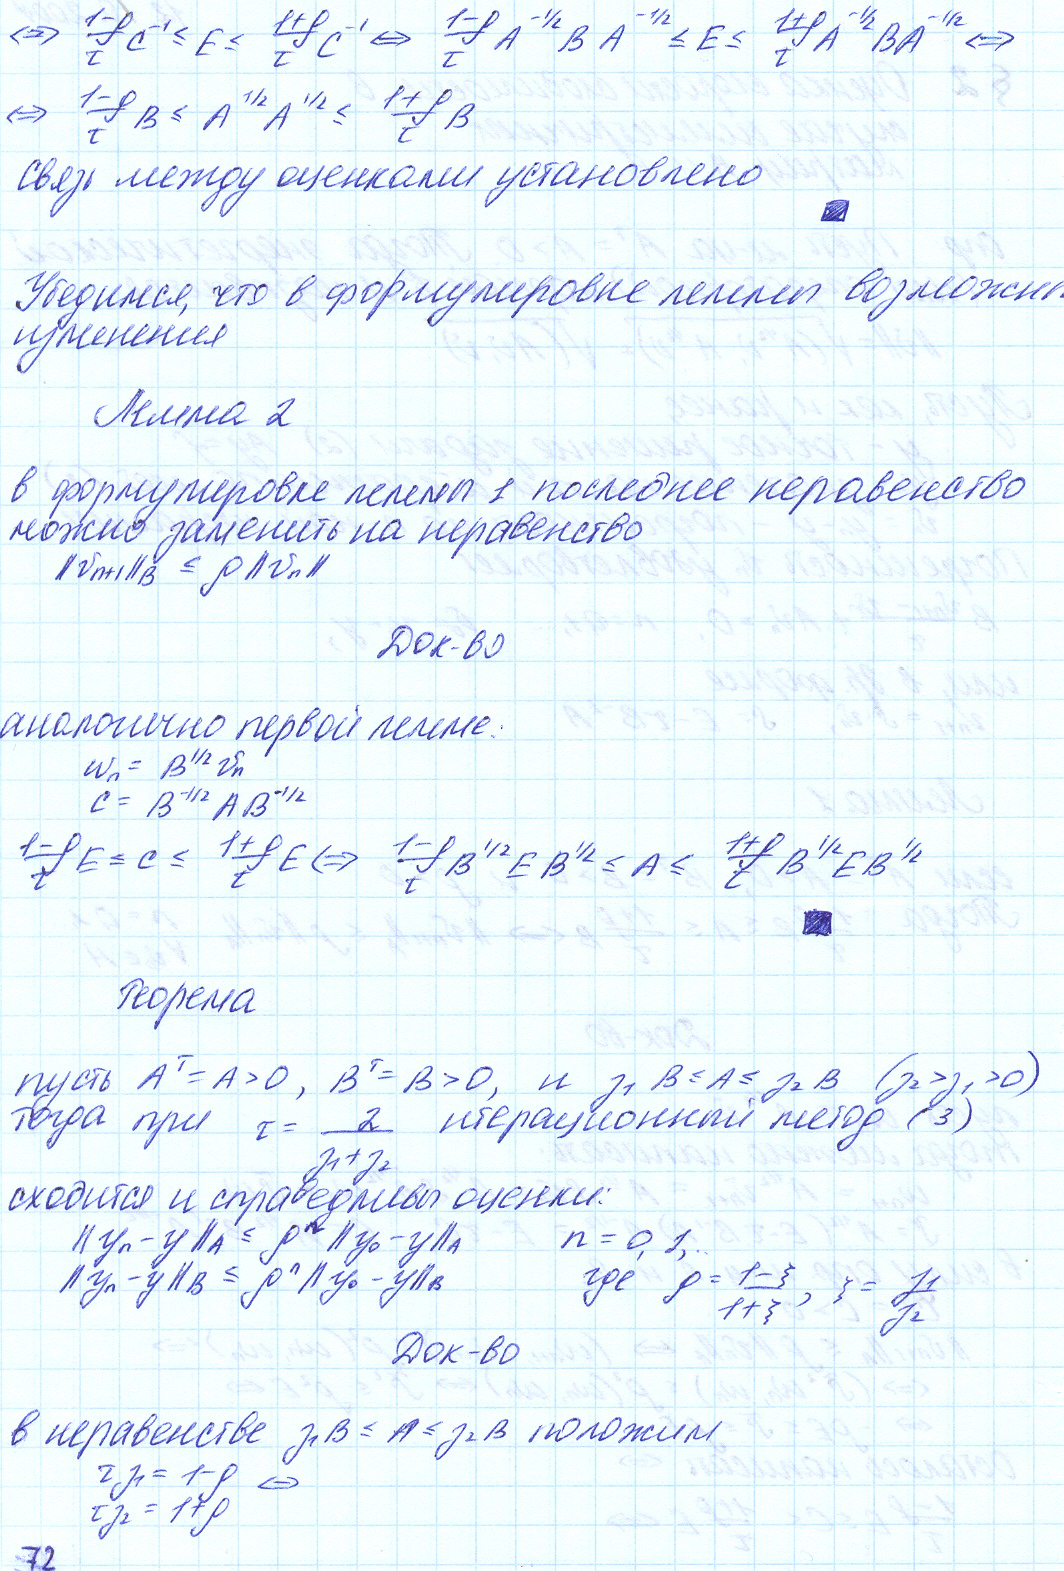 ⇔ (1-ρ)/τ C⁻¹ ≤ E ≤ (1+ρ)/τ C⁻¹ ⇔ (1-ρ)/τ A^{-1/2} B A^{-1/2} ≤ E ≤ (1+ρ)/τ A^{-1/2} B A^{-1/2} ⇔
⇔ (1-ρ)/τ B ≤ A^{1/2} A^{1/2} ≤ (1+ρ)/τ B
связь между оценками установлено
Убедимся, что в формулировке леммы возможны
изменения
Лемма 2
в формулировке леммы 1 последнее неравенство
можно заменить на неравенство
‖v_{n+1}‖_B ≤ ρ ‖v_n‖
Док-во
аналогично первой лемме:
w_n = B^{1/2} v_n
C = B^{-1/2} A B^{-1/2}
(1-ρ)/τ E ≤ C ≤ (1+ρ)/τ E ⇔ (1-ρ)/τ B^{1/2} E B^{1/2} ≤ A ≤ (1+ρ)/τ B^{1/2} E B^{1/2}
Теорема
пусть A^T = A > 0, B^T = B > 0, и γ₁ B ≤ A ≤ γ₂ B (γ₂ > γ₁ > 0)
тогда при τ = 2/(γ₁+γ₂) итерационный метод (3)
сходится и справедливы оценки:
‖y_n - y‖_A ≤ ρ^n ‖y₀ - y‖_A n = 0, 1, ..
‖y_n - y‖_B ≤ ρ^n ‖y₀ - y‖_B где ρ = (1-ξ)/(1+ξ), ξ = γ₁/γ₂
Док-во
в неравенстве γ₁B ≤ A ≤ γ₂B положим
τγ₁ = 1-ρ ⇔
τγ₂ = 1+ρ
72